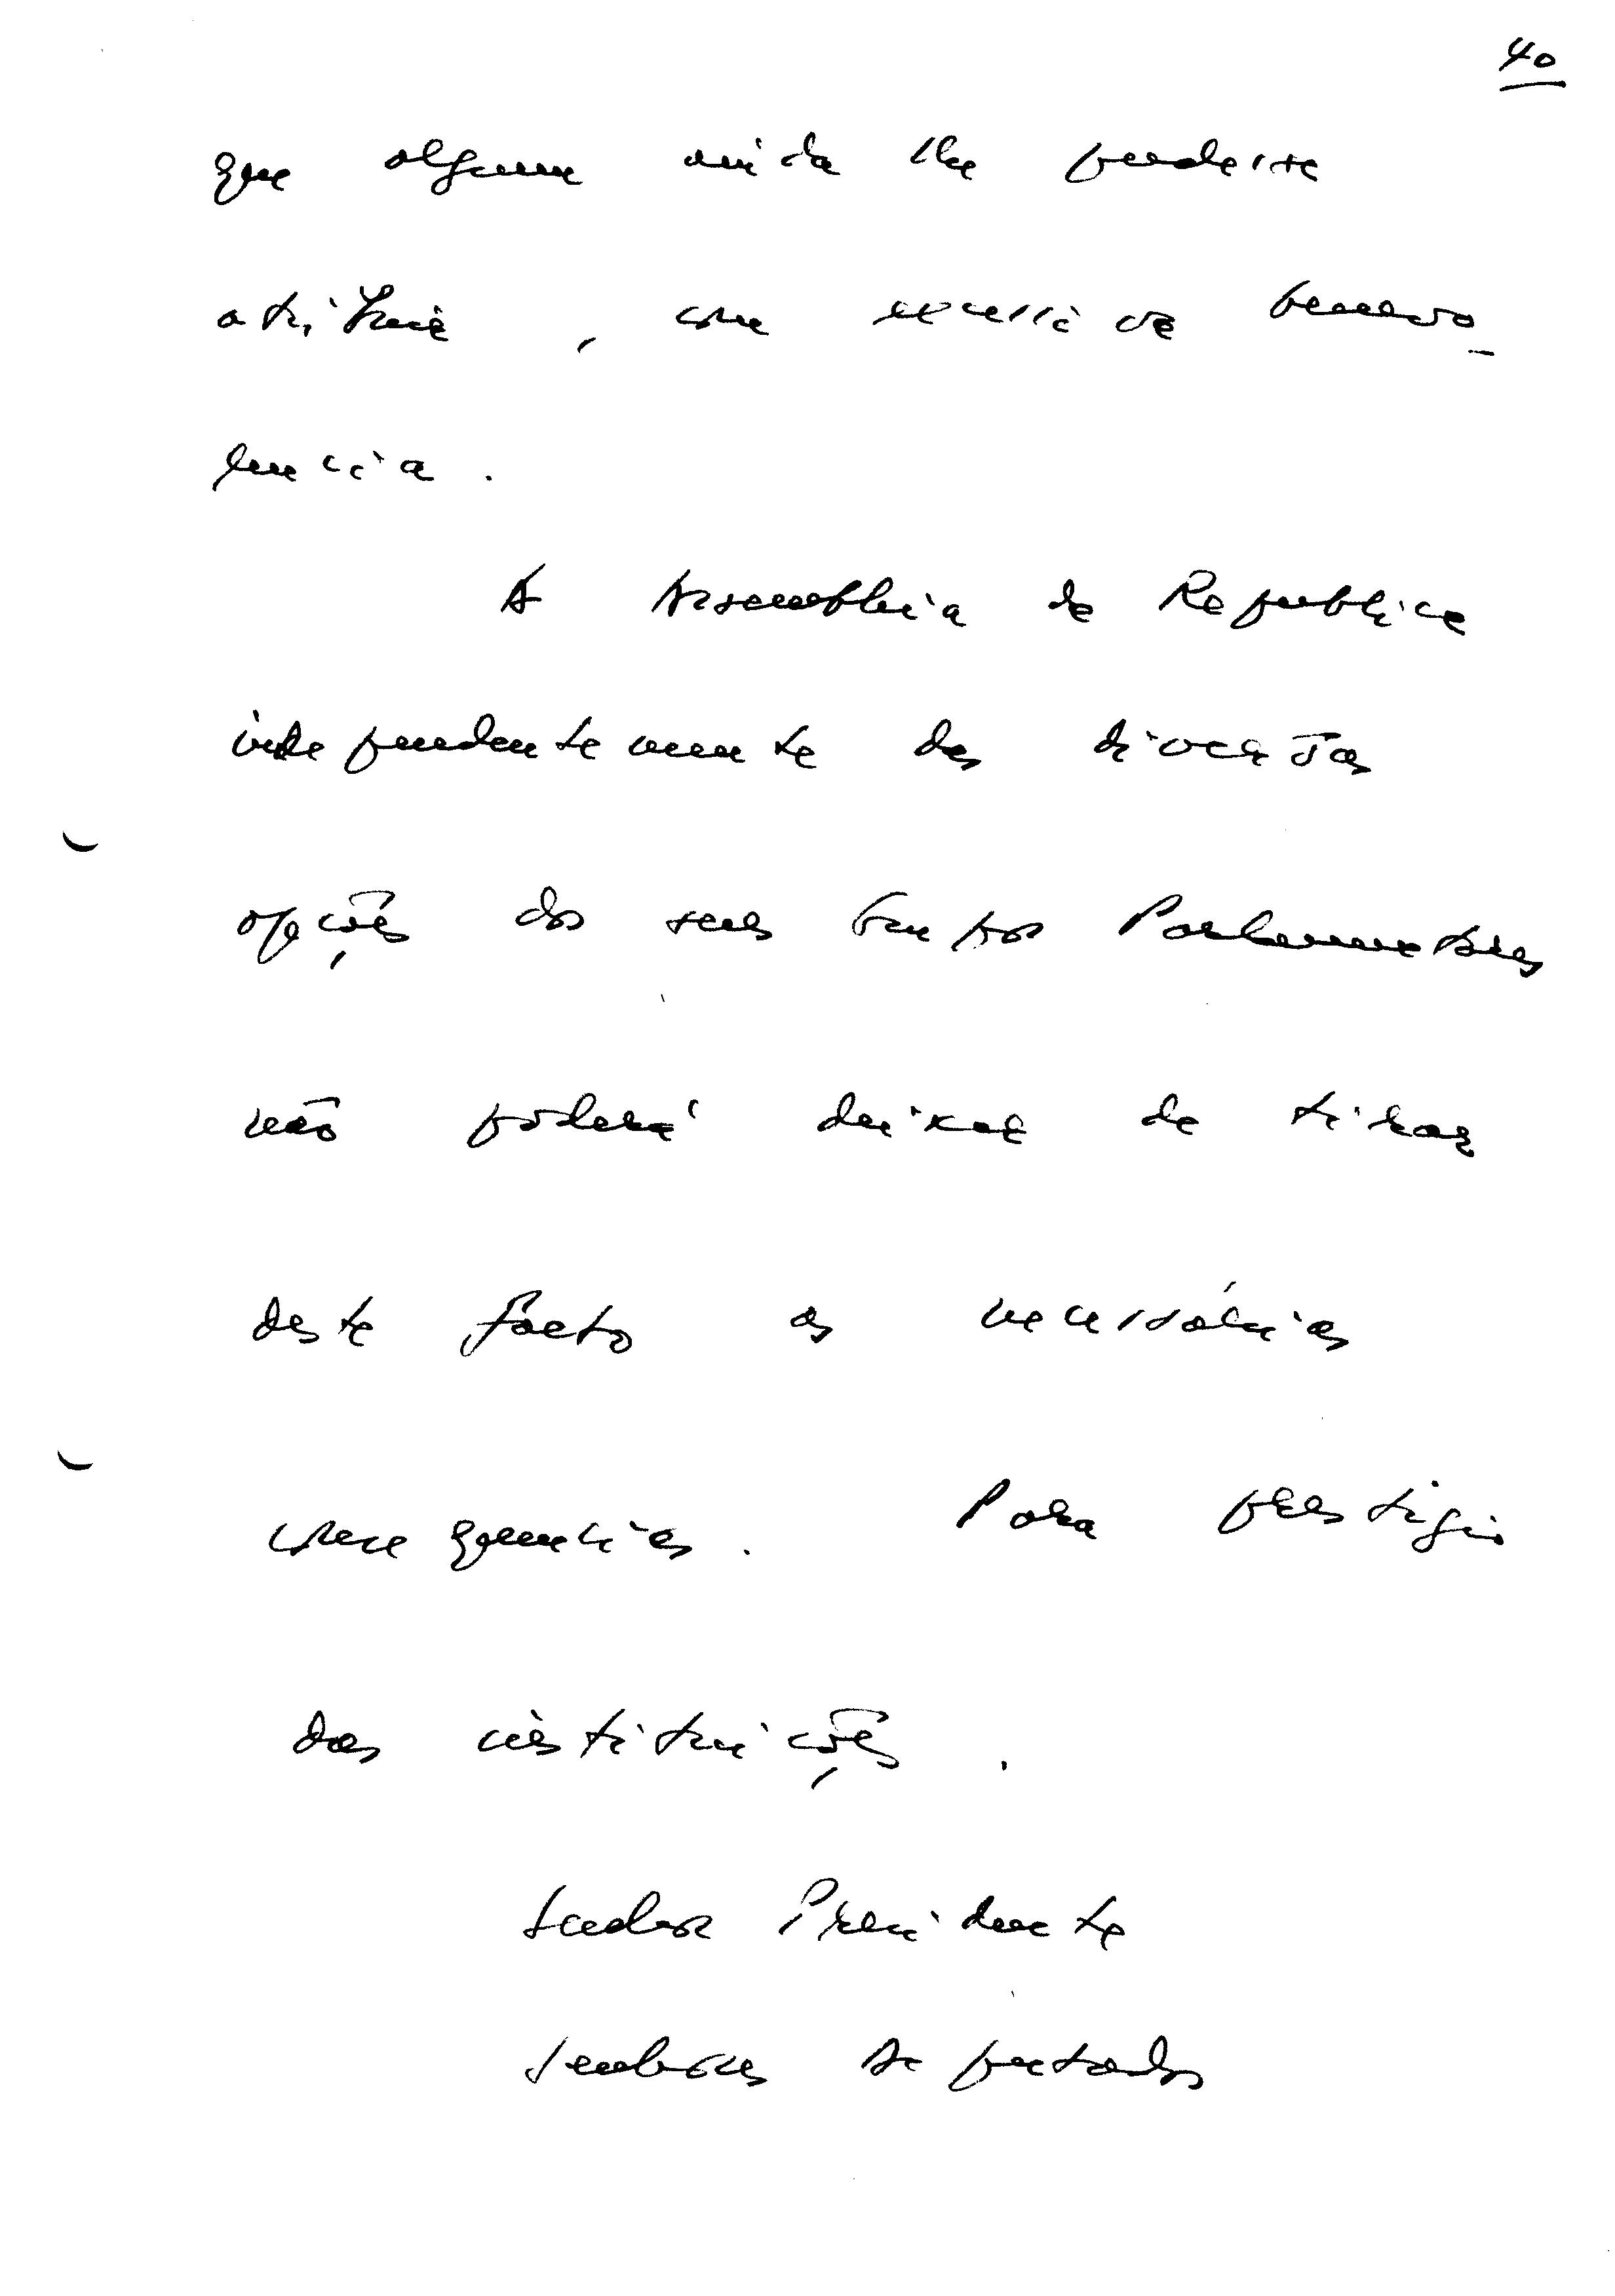 40
que alguem ainda lhe pudesse
atribuir, com excessiva benevo_
lencia.
A Assembleia da Republica
independentemente das diversas
opções dos seus Grupos Parlamentares
não poderá deixar de tirar
deste facto as necessárias
consequencias. Para prestigio
das instituições.
Senhor Presidente
Senhores Deputados